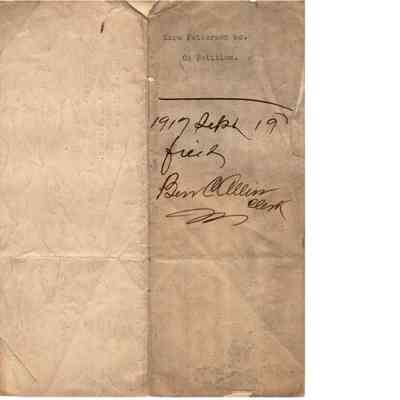 Ezra Patterson &c.
On Petition.
1917 Sept 19
filed
Ben C Allin
Clerk